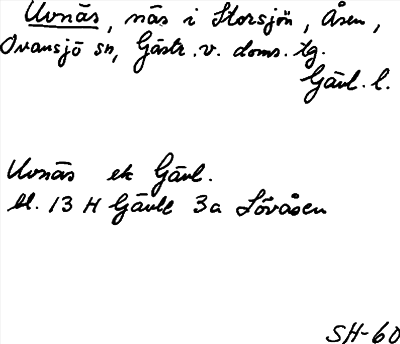 Uvnäs, näs i Storsjön, Åsen,
Ovansjö sn, Gästr. v. doms. tg.
Gävl. l.
Uvnäs ek Gävl.
bl. 13 H Gävle 3a Lövåsen
SH-60